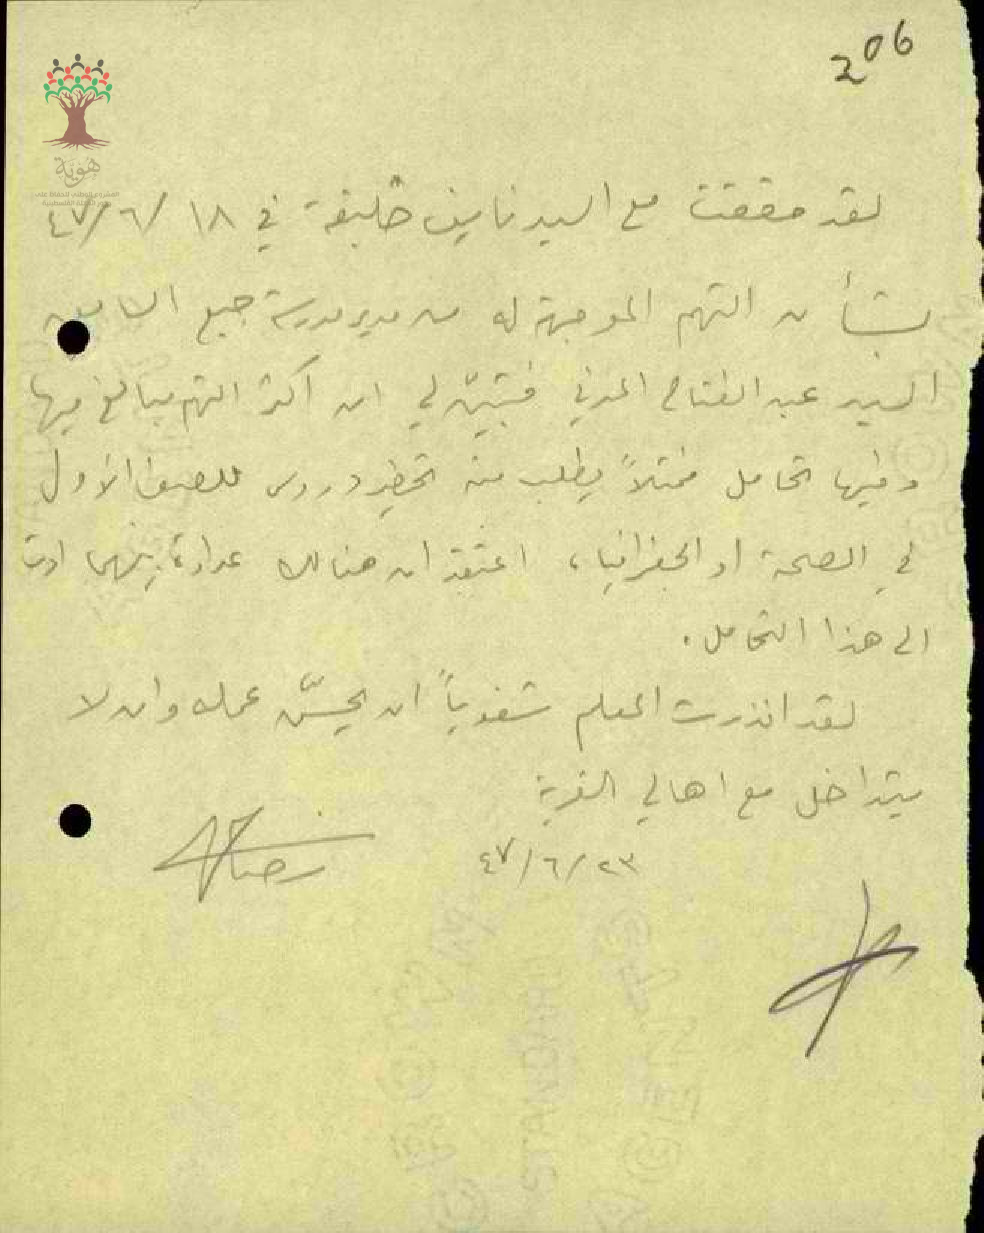 206
هوية
لقد حققت مع السيد نايف خليفة في ١٨/٦/٤٧
بشأن التهم الموجهة له من مدير مدرسة جبع السابق
السيد عبد الفتاح المدني فتبين لي ان اكثر التهم مبالغ فيها
وفيها تحامل فمثلاً يطلب منه تحضير دروس للصف الاول
في الصحة او الجغرافيا، اعتقد ان هنالك عداوة بينهما ادت
الى هذا التحامل.
لقد انذرت المعلم شفوياً ان يحسّن عمله وان لا
يتداخل مع اهالي القرية
٢٣/٦/٤٧